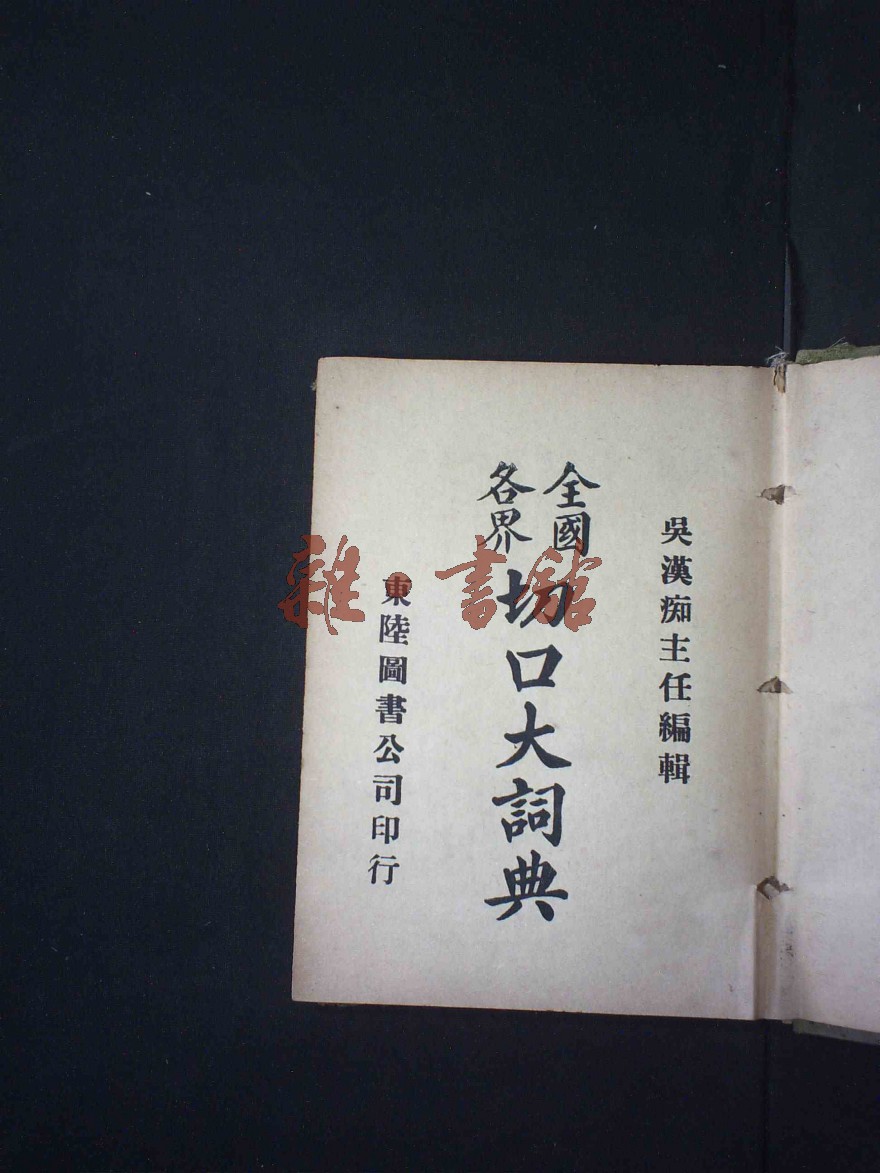 吳漢痴主任編輯
全國
各界
切口大詞典
東陸圖書公司印行
雜·書館